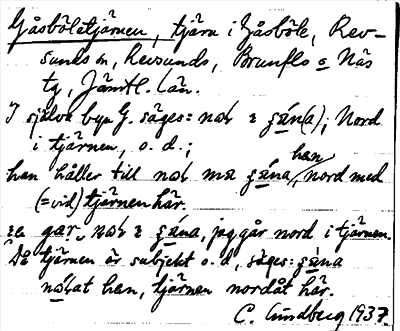 Gåsböletjärnen, tjärn i Gåsböle, Rev-
sunds sn, Revsunds, Brunflo o Näs
tg, Jämtl. län.
I själva byn G. säges: i (a); Nord
i tjärnen, o. d.;
han
han håller till nord med
(=vid) tjärnen här.
jag går nord i tjärnen.
Då tjärnen är subjekt o. d, säges:
han, tjärnen nordåt här.
C. Lundberg 1937.